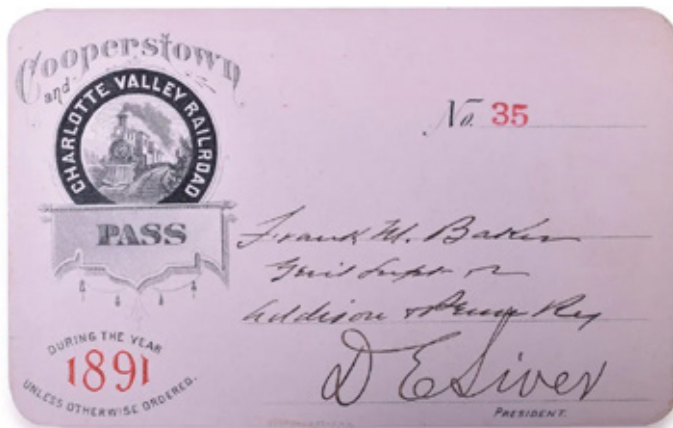 Cooperstown
and
CHARLOTTE VALLEY RAILROAD
PASS
No. 35
Frank M. Baker
Genl Supt
Addison & Penn Ry
DURING THE YEAR
1891
UNLESS OTHERWISE ORDERED.
D E Siver
PRESIDENT.